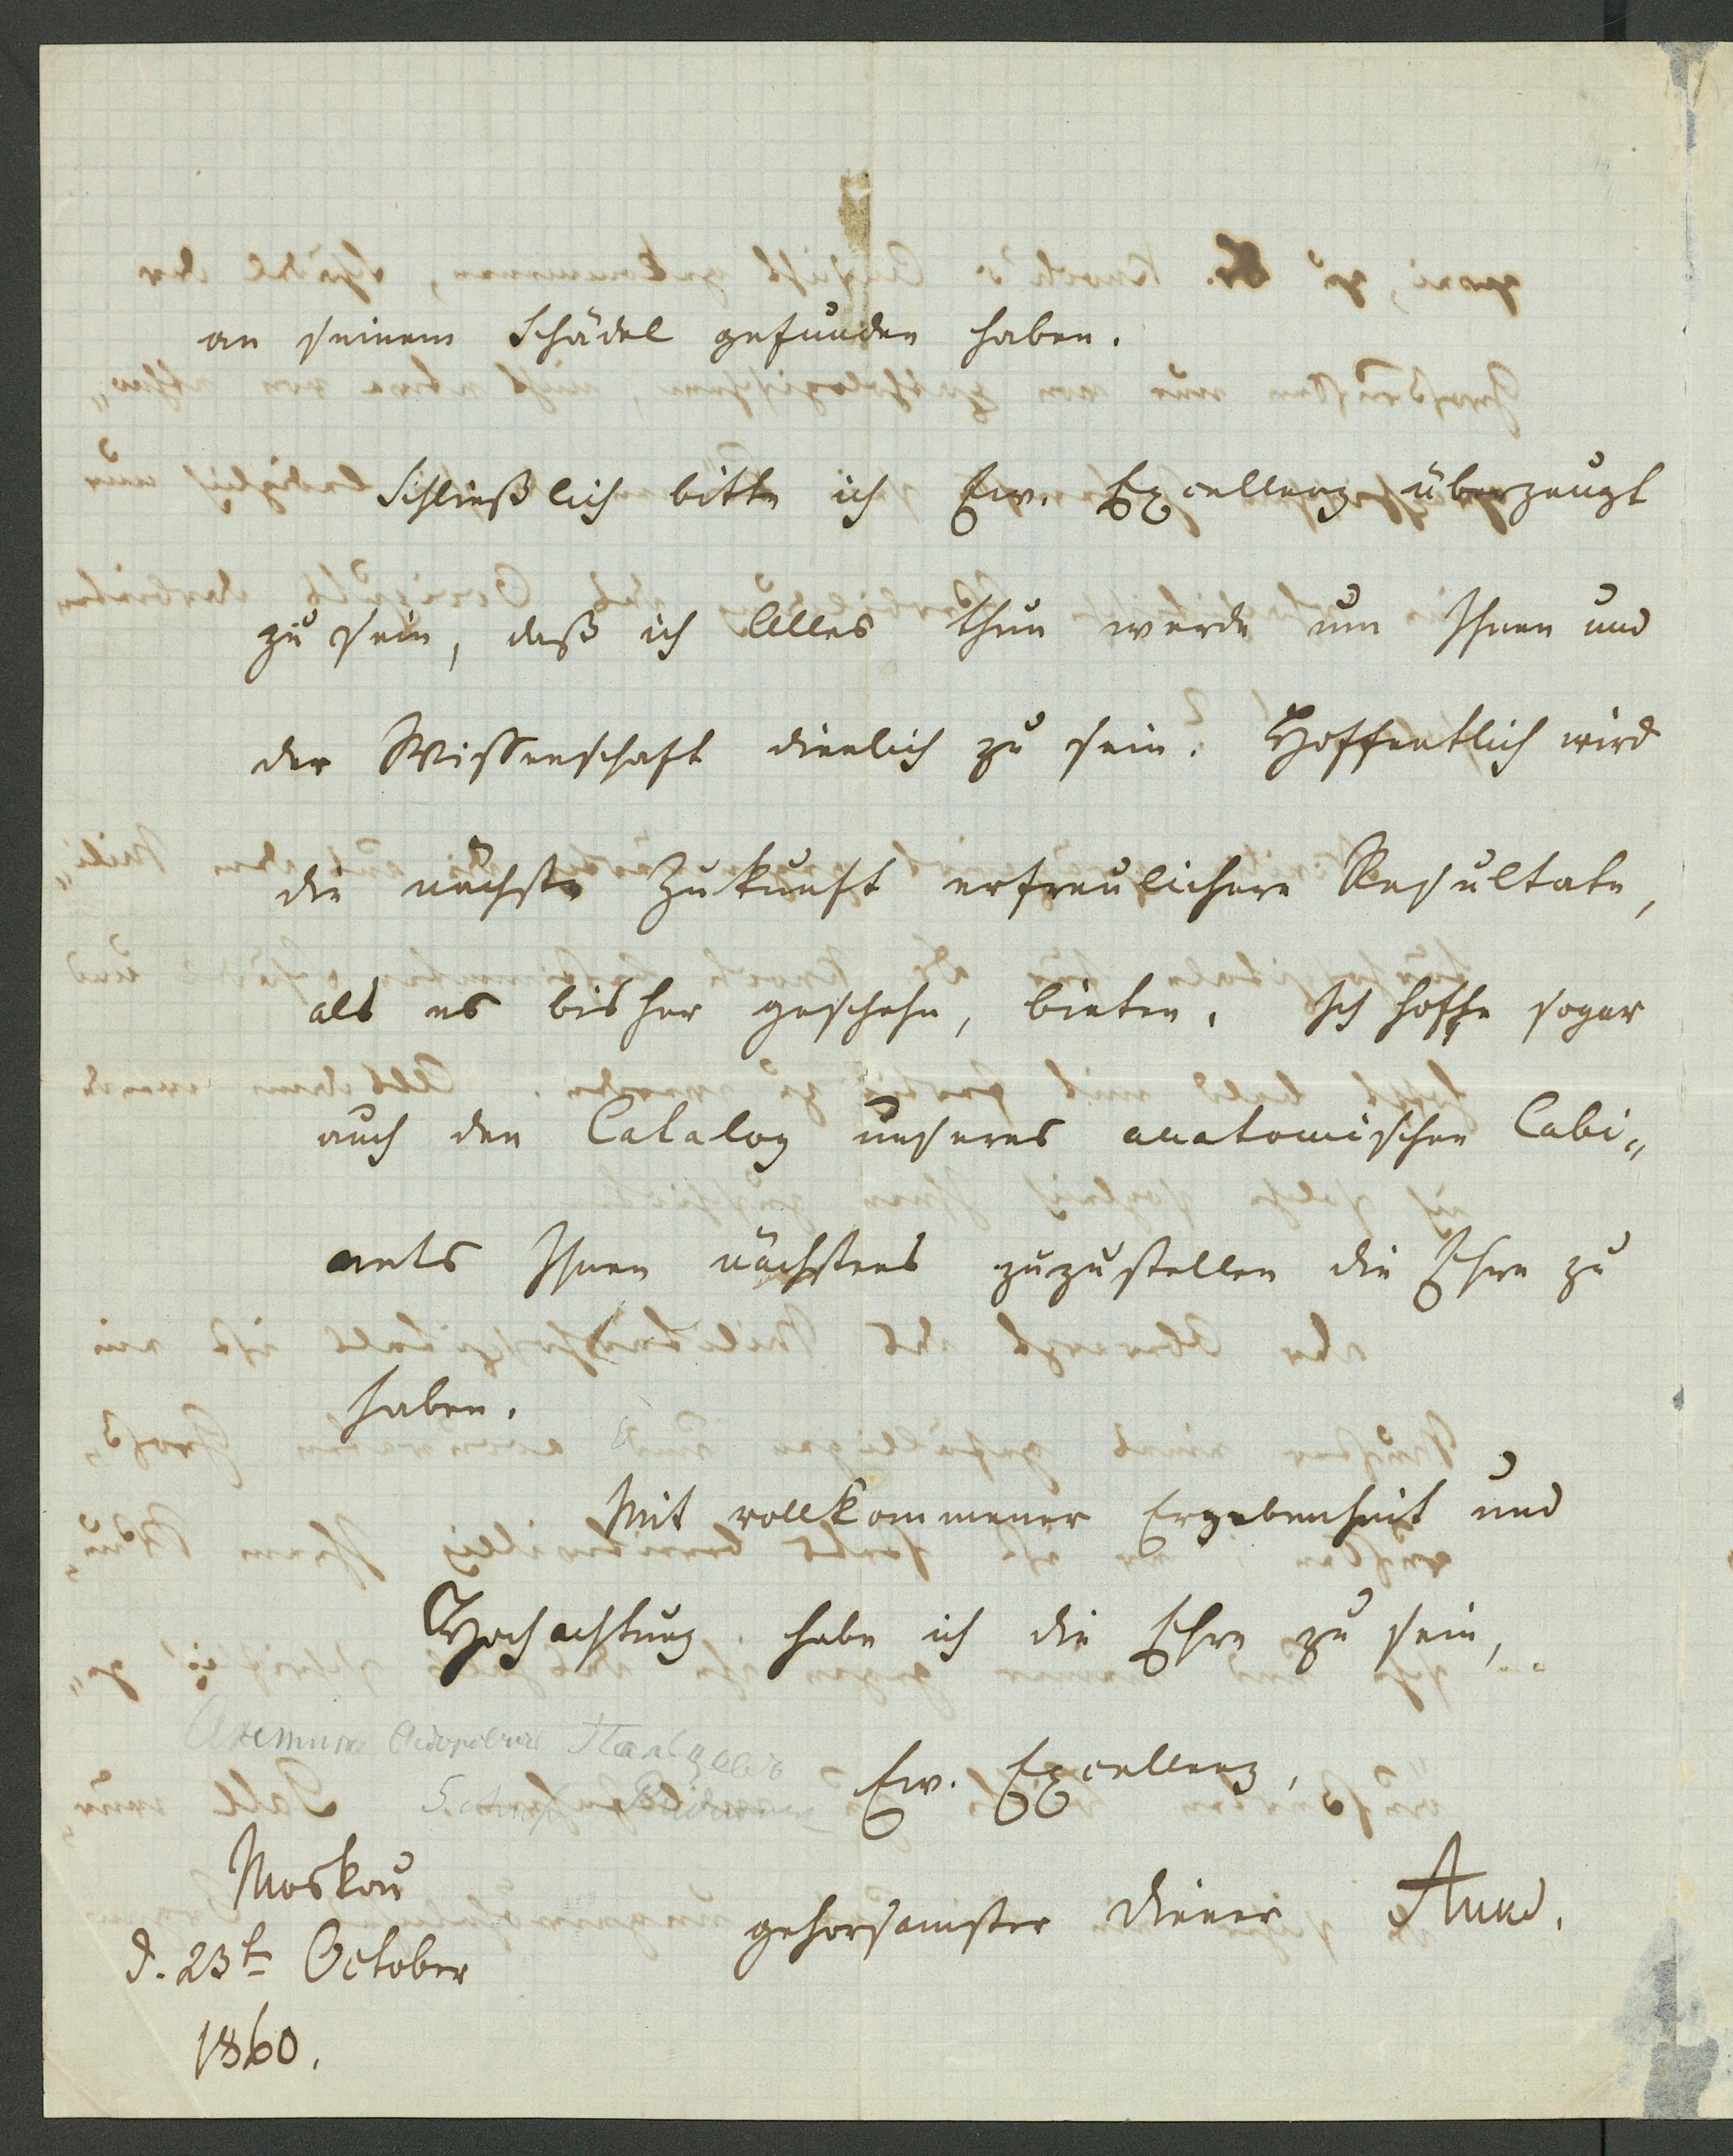 an seinem Schädel gefunden haben.
Schließlich bitte ich Ew. Excellenz überzeugt
zu sein, daß ich Alles thun werde um Ihnen und
der Wissenschaft dienlich zu sein. Hoffentlich wird
die nächste Zukunft erfreulichere Resultate,
als es bisher geschehn, bieten. Ich hoffe sogar
auch den Catalog unseres anatomischen Cabi„
nets Ihnen nächstens zuzustellen die Ehre zu
haben.
Mit vollkommener Ergebenheit und
Hochachtung habe ich die Ehre zu sein,
Ew. Excellenz,
gehorsamster Diener
Moskau
d. 23t October
1860.